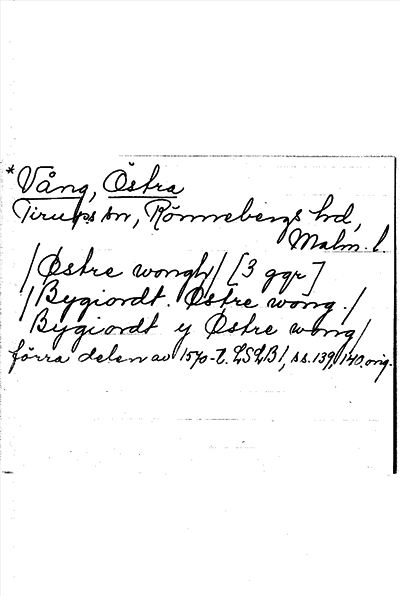 * Vång, Östra
Tirups sn, Rönnebergs hd,
Malm. l.
/Østre wongh/ [3 ggr]
/Bygiordt. Østre wong./
Bygiordt y Østre wong/
förra delen av 1570-t. LSLB 1, ss. 139, 140. orig.